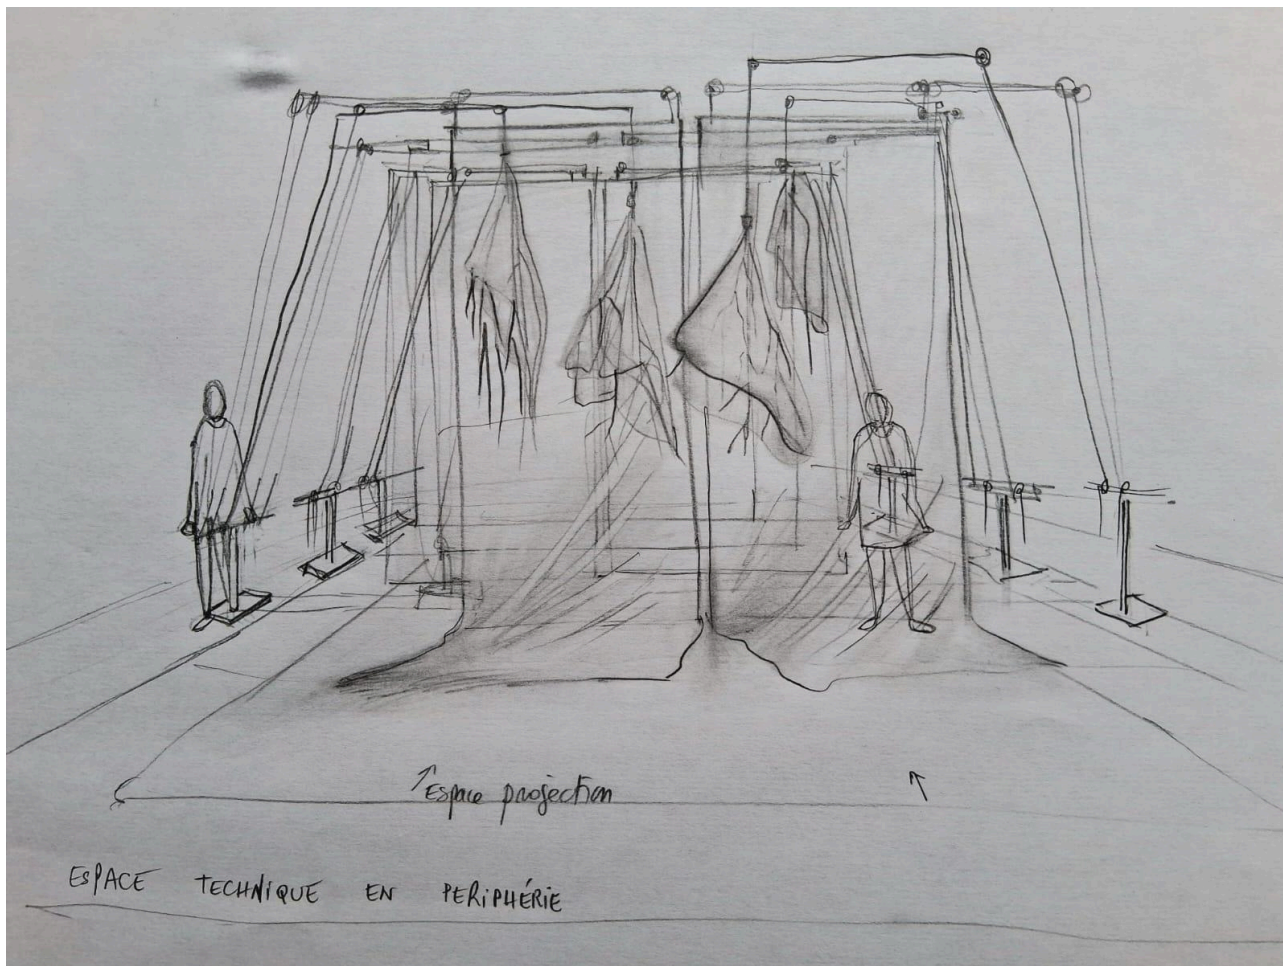 Espace projection
ESPACE TECHNIQUE EN PERiPHÉRiE